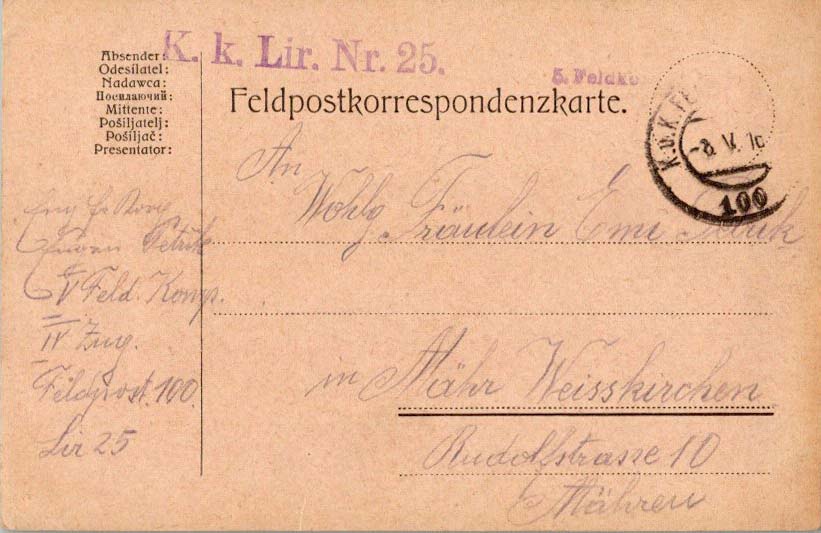 K. k. Lir. Nr. 25.
5. Feldko
Absender:
Odesílatel:
Nadawca:
Посилаючий:
Mittente:
Pošiljatelj:
Pošiljač:
Presentator:
Feldpostkorrespondenzkarte.
K.u.K. FE
-8 V. 16
100
An
Wohlg Fräulein Emi
in Mähr Weisskirchen
Rudolfstrasse 10
Mähren
Petrik
V Feld. Komp.
IV Zug.
Feldpost. 100
Lir 25